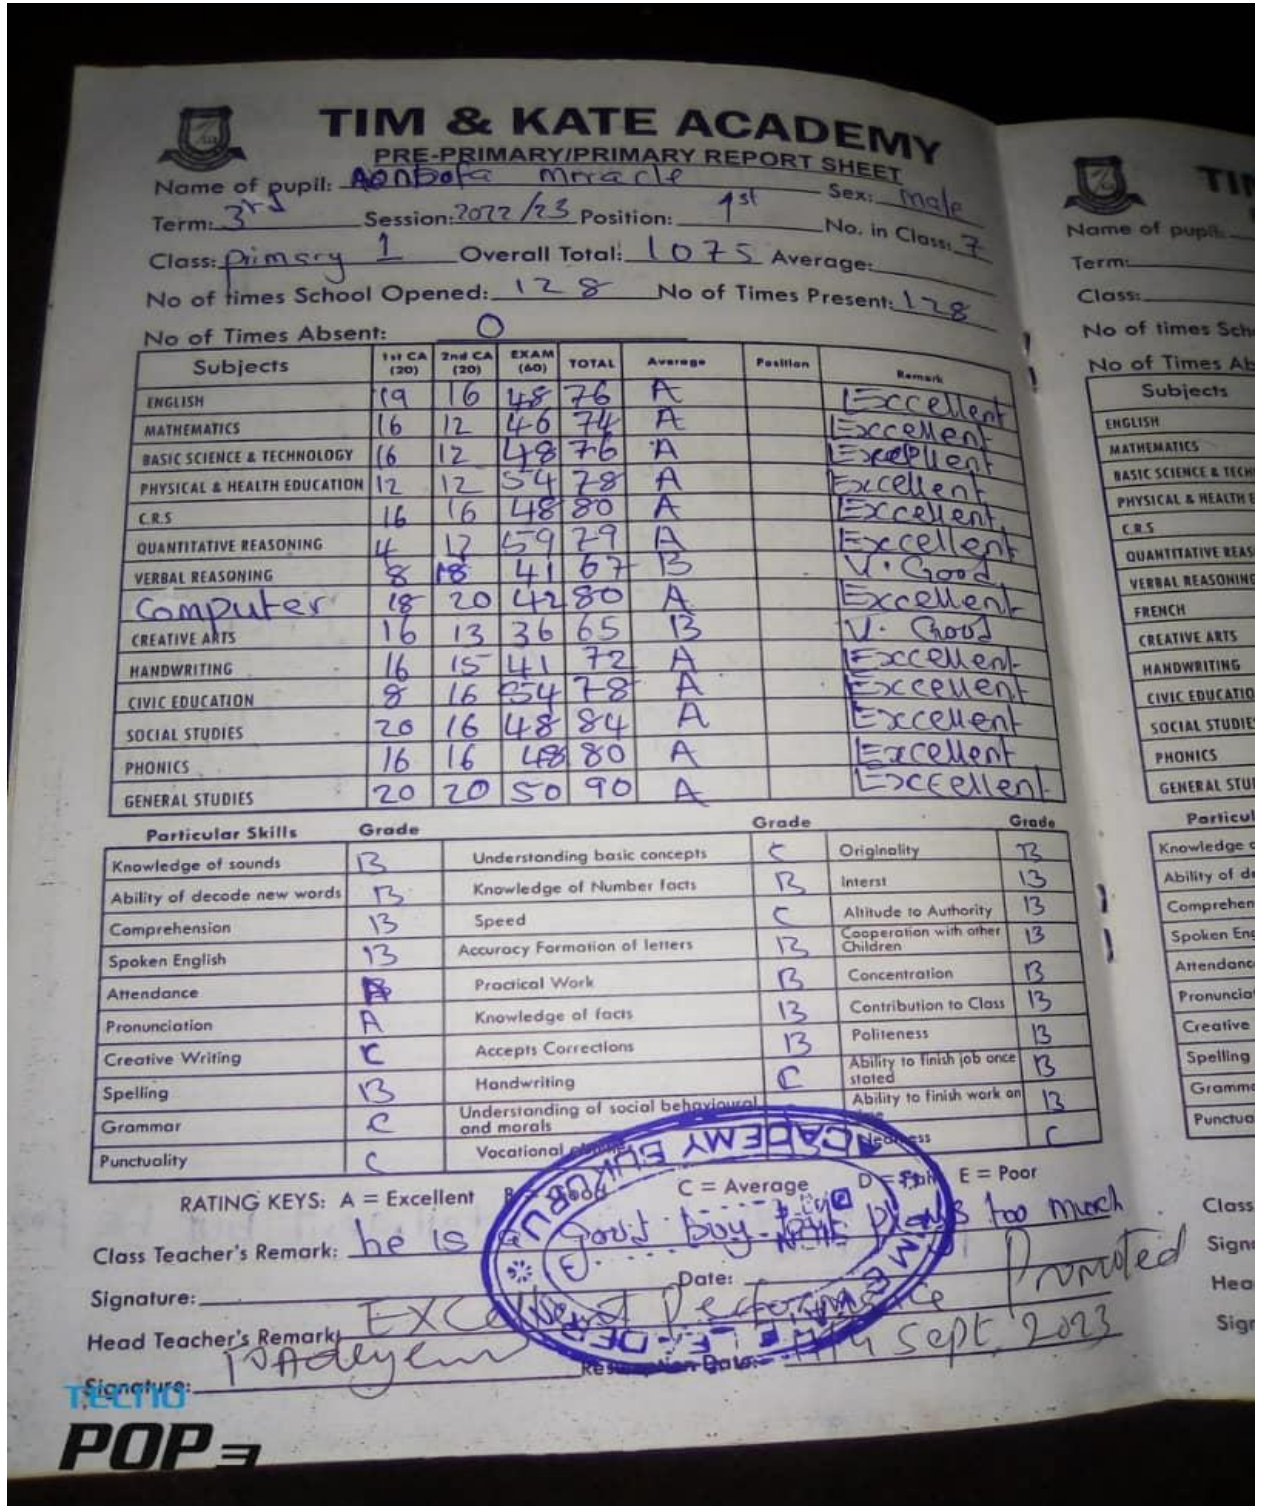 TIM & KATE ACADEMY
PRE-PRIMARY/PRIMARY REPORT SHEET
Name of pupil: Miracle Sex: male
Term: 3rd Session: 2022/23 Position: 1st No. in Class: 7
Class: primary 1 Overall Total: 1075 Average:
No of times School Opened: 128 No of Times Present: 128
No of Times Absent: 0
Subjects 1st CA (20) 2nd CA (20) EXAM (60) TOTAL Average Position Remark
ENGLISH 19 16 48 76 A Exccellent
MATHEMATICS 16 12 46 74 A Exccellent
BASIC SCIENCE & TECHNOLOGY 16 12 48 76 A
PHYSICAL & HEALTH EDUCATION 12 12 54 78 A Excellent
C.R.S 16 16 48 80 A Excellent
QUANTITATIVE REASONING 4 12 59 79 A Excellent
VERBAL REASONING 8 18 41 67 B V. Good
Computer 18 20 42 80 A Excellent
CREATIVE ARTS 16 13 36 65 B V. Good
HANDWRITING 16 15 41 72 A Excellent
CIVIC EDUCATION 8 16 54 78 A Excellent
SOCIAL STUDIES 20 16 48 84 A Excellent
PHONICS 16 16 48 80 A Excellent
GENERAL STUDIES 20 20 50 90 A Exceellent
Particular Skills Grade Grade Grade
Knowledge of sounds B Understanding basic concepts C Originality B
Ability of decode new words B Knowledge of Number facts B Interst B
Comprehension B Speed C Altitude to Authority B
Spoken English B Accuracy Formation of letters B Cooperation with other Children B
Attendance Practical Work B Concentration B
Pronunciation A Knowledge of facts B Contribution to Class B
Creative Writing C Accepts Corrections B Politeness B
Spelling B Handwriting C Ability to finish job once stated B
Grammar C Understanding of social behavioural and morals Ability to finish work on B
Punctuality C Vocational C
RATING KEYS: A = Excellent C = Average E = Poor
Class Teacher's Remark: he is a good boy but plays too much
Signature: Date:
Head Teacher's Remark Excellent Performance Promoted
Signature: Resumption Date: Sept, 2023
ACADEMY
TECNO
POP 3
Name of pupil:
Term:
Class:
No of times Sch
No of Times Ab
Subjects
ENGLISH
MATHEMATICS
BASIC SCIENCE & TECH
PHYSICAL & HEALTH E
C.R.S
QUANTITATIVE REAS
VERBAL REASONING
FRENCH
CREATIVE ARTS
HANDWRITING
CIVIC EDUCATIO
SOCIAL STUDIE
PHONICS
GENERAL STU
Particul
Knowledge o
Ability of d
Comprehen
Spoken Eng
Attendanc
Pronuncia
Creative
Spelling
Gramma
Punctua
Class
Signa
Hea
Sign